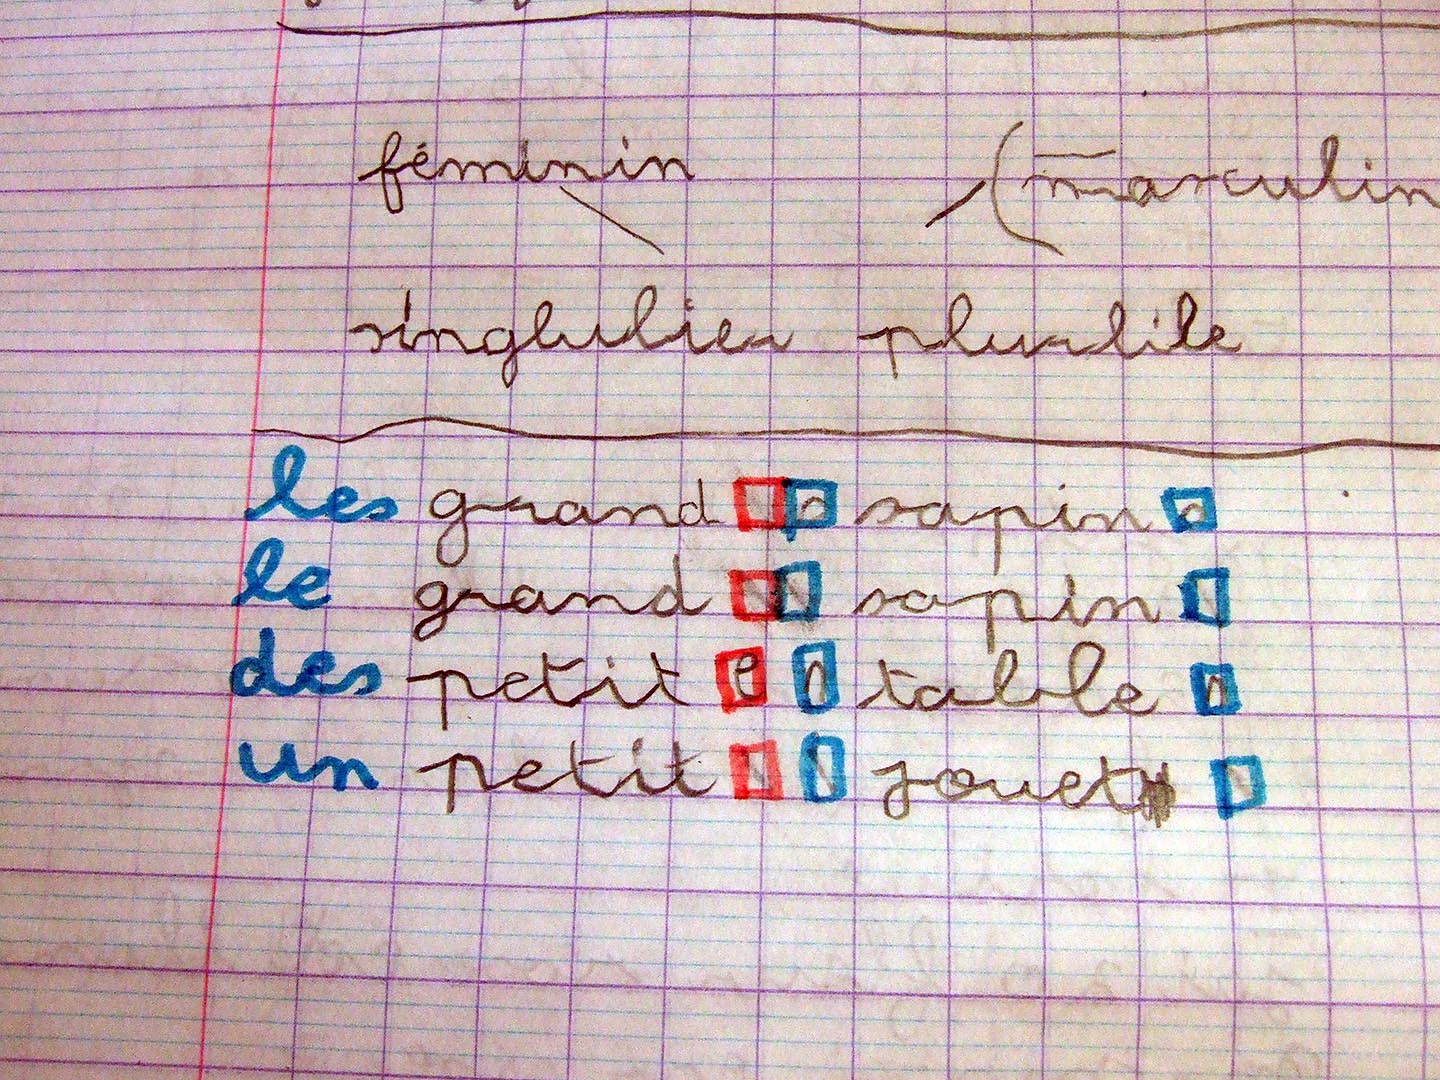 féminin (masculin
singlulier plurlile
les grand s sapin s
le grand sapin
des petit e s table s
un petit jouet